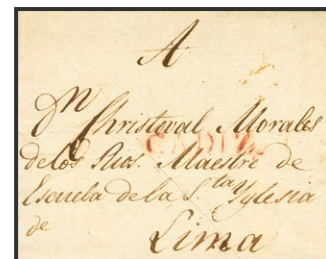 A
Dn Christoval Morales
de los Rios. Maestre de
Escuela de la S.ta Yglesia
de Lima
CADIZ